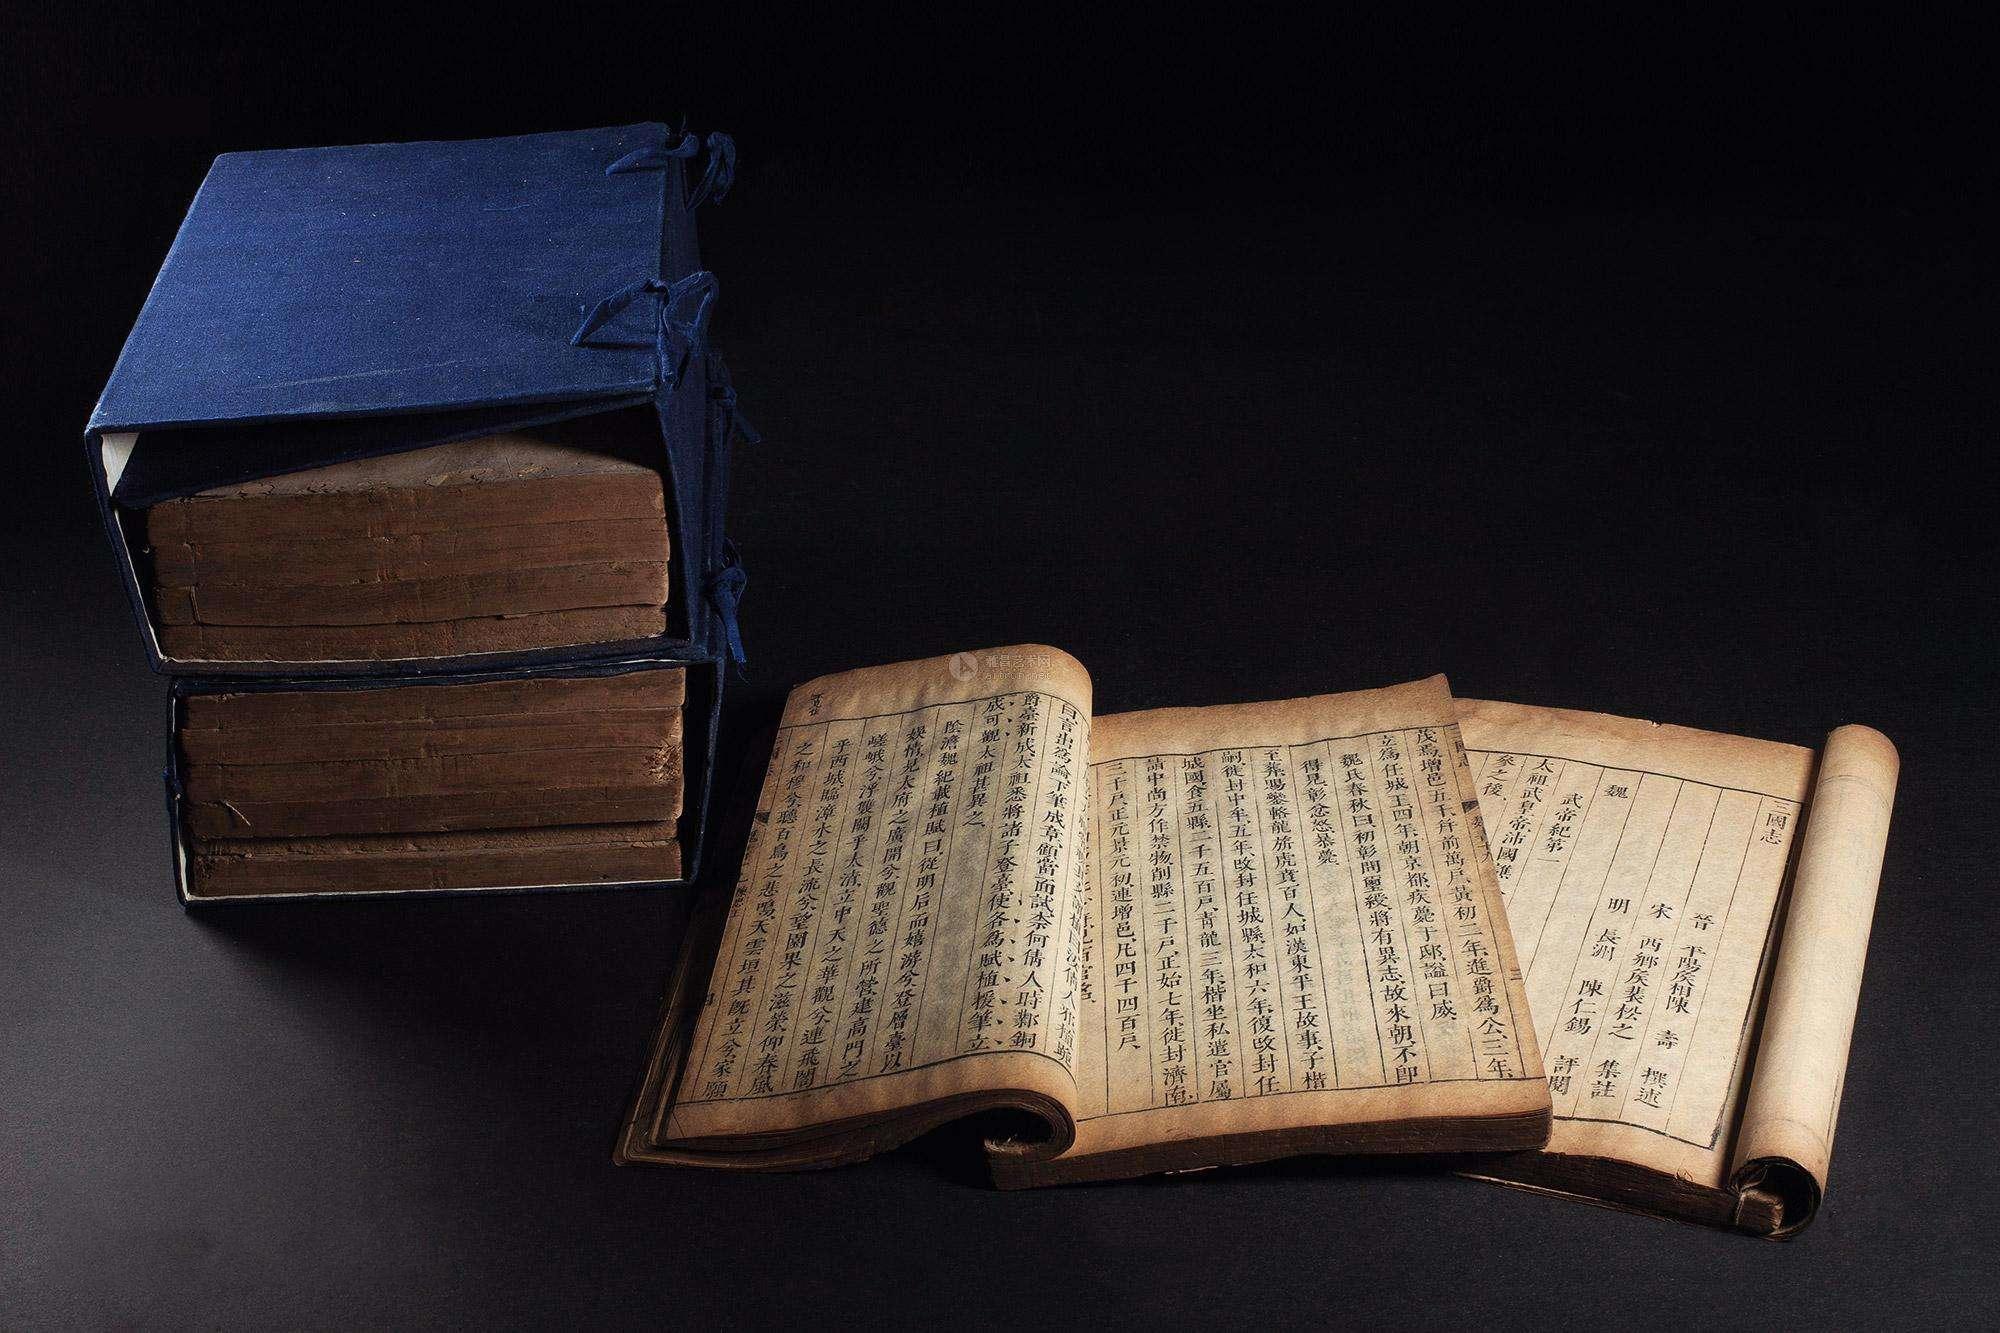 三國志
晉 平陽矦相陳 壽 撰述
宋 西鄉矦裴松之 集註
明 長洲 陳仁錫 評閱
魏
武帝紀第一
太祖武皇帝沛國譙
象之後
茂焉增邑五千并前萬戶黃初二年進爵爲公三年
立爲任城王四年朝京都疾薨于邸諡曰威
魏氏春秋曰初彰問璽綬將有異志故來朝不卽
得見彰忿怒暴薨
至葬賜鑾輅龍旂虎賁百人如漢東平王故事子楷
嗣徙封中牟五年改封任城縣太和六年復改封任
城國食五縣二千五百戶靑龍三年楷坐私遣官屬
詣中尚方作禁物削縣二千戶正始七年徙封濟南
三千戶正元景元初連增邑凡四千四百戶
曰言出爲論下筆成章顧當面試柰何倩人時鄴銅
爵臺新成太祖悉將諸子登臺使各爲賦植援筆立
成可觀太祖甚異之
陰澹魏紀載植賦曰從明后而嬉游兮登層臺以
娛情見太府之廣開兮觀聖德之所營建高門之
嵯峨兮浮雙闕乎太淸立中天之華觀兮連飛閣
乎西城臨漳水之長流兮望園果之滋榮仰春風
之和穆兮聽百鳥之悲鳴天雲垣其旣立兮家願